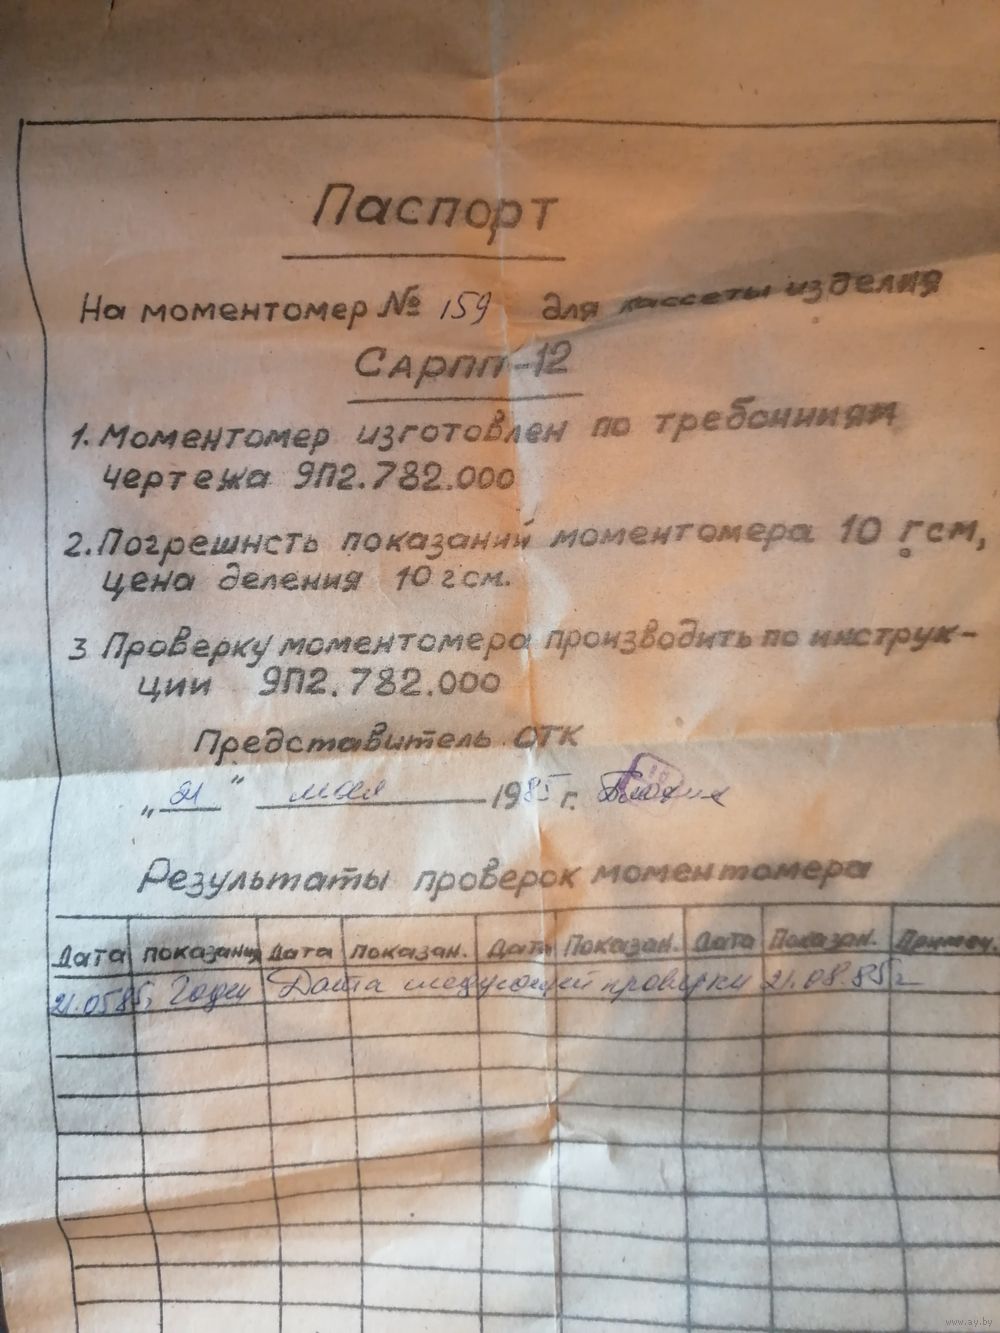 Паспорт
На моментомер № 159 для кассеты изделия
САРПП-12
1. Моментомер изготовлен по требонниям
чертежа 9П2.782.000
2. Погрешнсть показаний моментомера 10 гсм,
цена деления 10 гсм.
3 Проверку моментомера производить по инструк-
ции 9П2.782.000
Представитель ОТК
„21" мая 1985 г.
Результаты проверок моментомера
Дата показания Дата показан. Дата Показан. Дата Показан. Примеч.
21.0585г Годен Дата следующей проверки 21.08.85г
www.ay.by